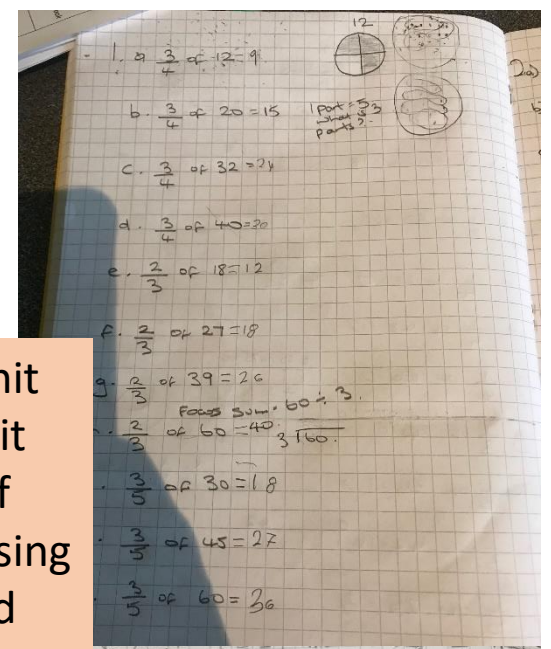 12
1. a 3/4 of 12 = 9
2a)
b. 3/4 of 20 = 15
1 part = 5
what is 3
parts?
c. 3/4 of 32 = 24
d. 3/4 of 40 = 30
e. 2/3 of 18 = 12
f. 2/3 of 27 = 18
g. 2/3 of 39 = 26
Focus sum. 60 ÷ 3.
. 2/3 of 60 = 40. 3 | 60.
. 3/5 of 30 = 18
. 3/5 of 45 = 27
. 3/5 of 60 = 36
nit
it
f
sing
d